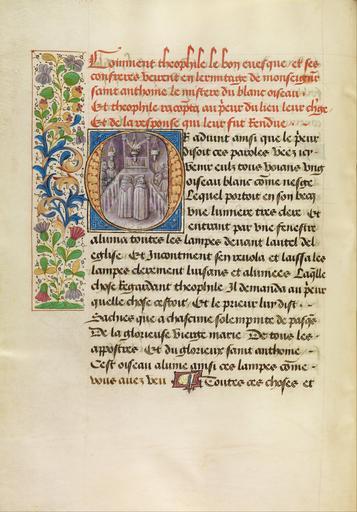 Comment theophile le bon evesque et ses
confreres veirent en lermitage de monseignr
saint anthoine le mistere du blanc oiseau
Et theophile racompta au prieur du lieu leur chge
Et de la response qui leur fut rendue
Et aduint ainsi que le prieur
disoit ces paroles veez icy
venir eulx tous voians vng
oiseau blanc come neige
Lequel portoit en son becq
vne lumiere tres clere Et
entrant par vne fenestre
aluma toutes les lampes deuant lautel de
eglise Et Incontinent sen reuola et laissa les
lampes clerement luisans et alumees Laqlle
chose Regardant theophile Il demanda au prieur
quelle chose cestoit Et le prieur luy dist
Sachies que a chascune solempnite de pasqs
De la glorieuse vierge marie De tous les
appostres Et du glorieux saint anthoine
Cest oiseau alume ainsi ces lampes come
vous auez veu Et Toutes ces choses et